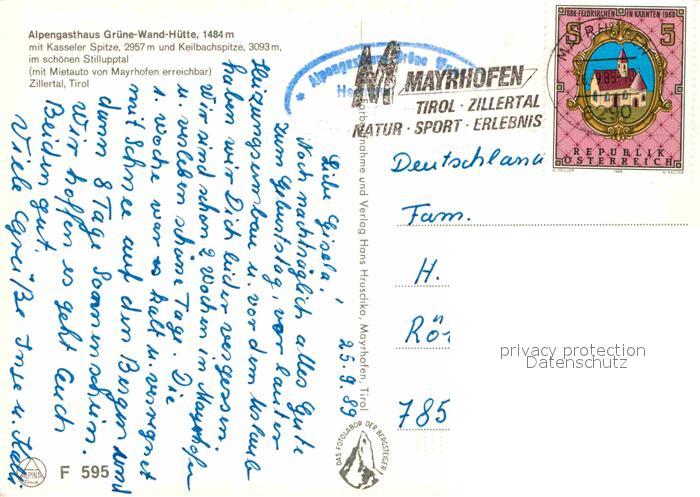 Alpengasthaus Grüne-Wand-Hütte, 1484 m
mit Kasseler Spitze, 2957 m und Keilbachspitze, 3093 m,
im schönen Stillupptal
(mit Mietauto von Mayrhofen erreichbar)
Zillertal, Tirol
25.9.89
Liebe Gisela,
Noch nachträglich alles Gute
zum Geburtstag, vor lauter
Heizungsumbau u. vor dem Urlaub
haben wir Dich leider vergessen.
Wir sind schon 2 Wochen in Mayrhofen
u. verleben schöne Tage. Die
1. Woche war es kalt u. verregnet
mit Schnee auf den Bergen und
dann 8 Tage Sonnenschein.
Wir hoffen es geht Euch
Beiden gut.
Viele Grüße Inge u.
F 595
Alpengasthaus Grüne
MAYRHOFEN
TIROL · ZILLERTAL
NATUR · SPORT · ERLEBNIS
6290
888 FELDKIRCHEN IN KÄRNTEN 1988
S 5
REPUBLIK
ÖSTERREICH
1988
Verlag Hans Hruschka, Mayrhofen, Tirol
DAS FOTOLABOR DER BERGSTEIGER
Deutschland
Fam.
H.
785
privacy protection
Datenschutz